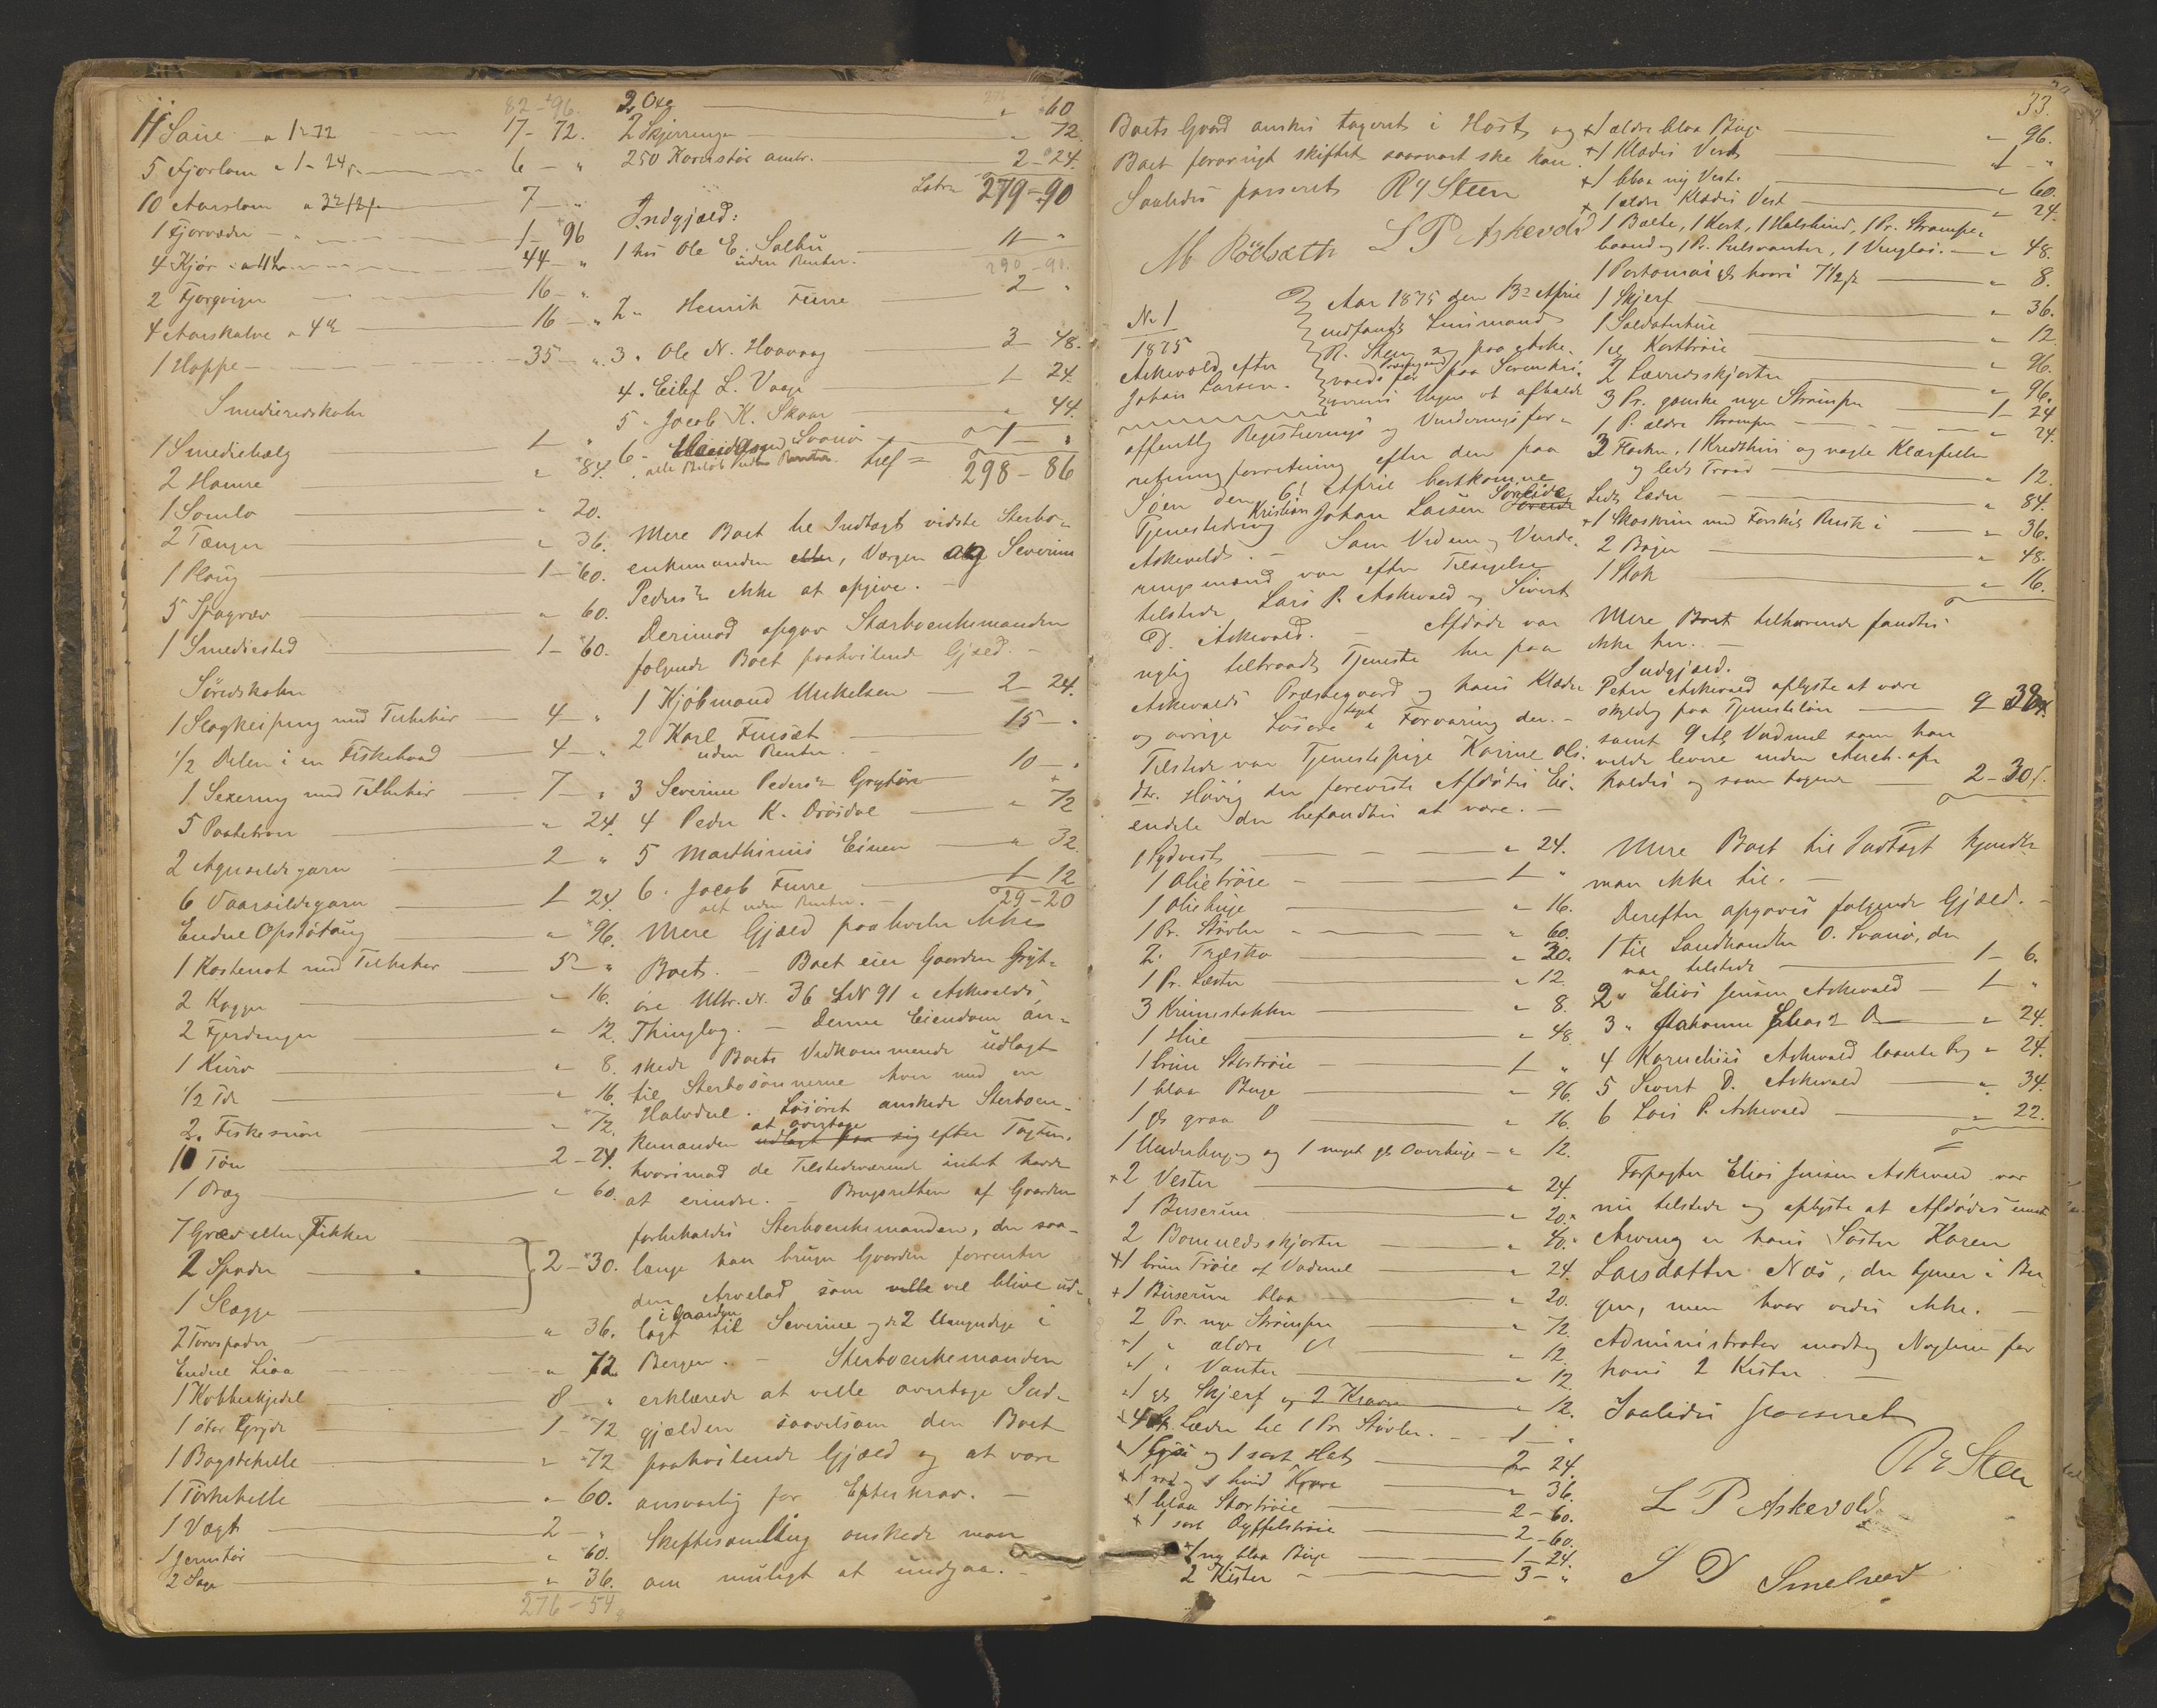 82-96.
11 Saue a 1-72 17-72.
5 Fjorlam a 1-24 6-"
10 Aarslam 7-"
1 Fjorvæder 1-96
4 Kjør a 11 44-"
2 Fjorqviger 16-"
4 Aarskalve a 4 16-"
1 Hoppe 35-"
Smedieredskaber
1 Smediebælg 1-"
2 Hamre " 84.
1 Somlo " 20.
2 Tænger " 36.
1 Ploug 1-60.
5 " 60.
1 Smediested 1-60.
Søredskaber
1 med Tilbehør 4-"
1/2 Delen i en Fiskebaad 4-"
1 Sexering med Tilbehør 7-"
5 " 24.
2 Agnsildgarn 2-"
6 Vaarsildgarn 1-24.
Endel Opstøtaug " 96.
1 Kastenot med Tilbehør 5-"
2 Kagger " 16.
2 Fjerdinger " 12.
1 Kurv " 8.
1/2 Tde " 16.
2 Fiskesnøre " 72.
10 Tøn 2-24.
1 Dræg " 60.
7 Græv eller Hikker
2 Spader 2-30.
1 Slægge
2 Torvspader " 36.
Endel Liaa " 72
1 Kobberkjedel 8-"
1 stor Gryde 1-72
1 Bagstehelle " 72
1 Tørkehelle " 60.
1 Vægt 2-"
1 Jernstør " 60.
2 Sage " 36.
276-54
2 Øxe " 60
2 Skjæreringer " 72.
250 Kornstør 2-24.
Latr 279-90
Indgjæld:
1 hos Ole E. Solbu 11-"
uden Renter. 290-90.
2 " Henrik Furre 2-"
3. Ole N. Haavaag 3-48.
4. Eilef L. Vaage 1-24.
5. Jacob K. Skaar " 44.
6. Svanø 1-"
alle Beløb uden Renter. 298-86
Mere Boet til Indtægt vidste Sterbo-
enkemanden eller, Værgen og Severine
Pedersdr ikke at opgive. -
Derimod opgav Stærboenkemanden
følgende Boet paahvilende Gjæld. -
1 Kjøbmand Mikkelsen 2-24.
2 Karl Furset 15-"
uden Renter.
3 Severine Pedersdr Grytøre 10-"
4 Peder K. Drøsdal " 72
5 Marthinus Einen " 32.
6. Jacob Furre 1-12
alt uden Renter. 29-20
Mere Gjæld paahviler ikke
Boet. - Boet eier Gaarden Gryt-
øre Mtr. N. 36 LN 91 i Askevolds
Thinglag. - Denne Eiendom øn-
skede Boets Vedkommende udlagt
til Sterbosønnerne hver med en
Halvdel. Løsøret ønskede Sterboen-
kemanden at overtage udlagt paa sig efter Taxten,
hvorimod de Tilstedeværende intet havde
at erindre. - Brugsretten af Gaarden
forbeholdes Sterboenkemanden, der saa-
længe han bruger Gaarden forrenter
den Arvelod som ville vil blive ud-
i Gaarden
lagt til Severine og de 2 Umyndige i
Bergen. - Sterboenkemanden
erklærede at ville overtage Ind-
gjælden saavelsom den Boet
paahvilende Gjæld og at være
ansvarlig for Efterkrav. -
Skiftesamling ønskede man
om muligt at undgaa. -
33.
Boets Gaard ønskes taxeret i Høst og
Boet forøvrigt skiftet saasnart ske kan.
Saaledes passeret R Y Steen
M Rödseth L P Askevold
No 1
1875
Askevold efter
Johan Larsen.
Aar 1875 den 13de April
indfandt Lensmand
R. Steen sig paa Aske-
vold Præstegaard for paa Sorenskri-
verens Vegne at afholde
offentlig Registrerings og Vurderingsfor-
retning forretning efter den paa
Søen den 6te April bortkomne
Tjenestedreng Kristian Johan Larsen Soreide
Askevold. - Som Vidner og Vurde-
ringsmænd var efter Tilsigelse
tilstede Lars P. Askevold og Sivert
D. Askevold. - Afdøde var
nylig tiltraadt Tjeneste her paa
Askevolds Præstegaard og hans Klæder
og øvrige Løsøre taget i Forvaring der. -
Tilstede var Tjenestepige Karine Ols-
dtr. Høvig der foreviste Afdødes Ei-
endele der befandtes at være. -
1 Sydvest " 24.
1 Olietrøie 1-"
1 Oliebuxe " 16.
1 Pr. Støvler " 60.
2. Træsko " 20.
1 Pr. Læster " 12.
3 " 8.
1 Hue " 48.
1 brun Stortrøie 1-"
1 blaa Buxe " 96.
1 gl graa D " 16.
1 Underbuxe og 1 meget gl Overbuxe " 12.
+ 2 Vester " 24.
1 Buserun " 20.
2 Bomuldsskjorter " 40.
+ 1 brun Trøie af Vadmel " 24.
+ 1 Buserun blaa " 20.
2 Pr. nye Strømper " 72.
1 " ældre Do " 12.
1 " Vanter " 12.
1 gl Skjerf og 2 Kraver " 12.
Læder til 1 Pr. Støvler. 1-"
og 1 sort Hat 2-24.
1 rød og 1 hvid Krave " 36.
+ 1 blaa Stortrøie 2-60.
+ 1 sort Dyffelstrøie 2-60.
+ 1 ny blaa Buxe 1-24.
2 Kister 3-"
+ 1 ældre blaa Buxe " 96.
+ 1 Klædes Vest 1-"
+ 1 blaa ny Vest. " 60.
+ 1 ældre Klædes Vest " 24.
1 Bælte, 1 Kort, 1 Halsbind, 1 Pr. Strømpe-
baand og 1 Pr. Pulsvanter, 1 " 48.
1 Portemonnai gl hvori 7 1/2 sk " 8.
1 Skjerf " 36.
1 Soldaterhue " 12.
1 gl Korttrøie " 96.
2 Lærredsskjorter " 96.
3 Pr. ganske nye Strømper 1-24
1 P. ældre Strømper " 24.
3 Flasker, 1 Kridthus og nogle Klædesfiller
og lidt Traad " 12.
Lidt Læder " 84.
+ 1 Skoskrin med Forskjell Rusk i " 36.
2 Bøger " 48.
1 Stok " 16.
Mere Boet tilhørende fandtes
ikke her. -
Indgjæld.
Peter Askevold oplyste at være
skyldig paa Tjenesteløn 9-38
samt 9 Al Vadmel som han
vilde levere inden Auct. af-
holdes og som taxeres 2-30.
Mere Boet til Indtægt kjendte
man ikke til. -
Derefter opgaves følgende Gjæld. -
1 til Landhandler O. Svanø, der
var tilstede 1-6.
2 " Elias Jensen Askevold 1-"
3 " Do " 24.
4 Kornelius Askevold laante " 24.
5 Sivert D. Askevold " 34.
6 Lars P. Askevold " 22.
Forpagter Elias Jensen Askevold var
nu tilstede og oplyste at Afdødes eneste
Arving er hans Søster Karen
Larsdatter Næs, der tjener i Ber-
gen, men hvor vides ikke. -
Administrator modtog Nøglene for
hans 2 Kister. -
Saaledes passeret
R Y Steen
L P Askevold
S D Smelvær